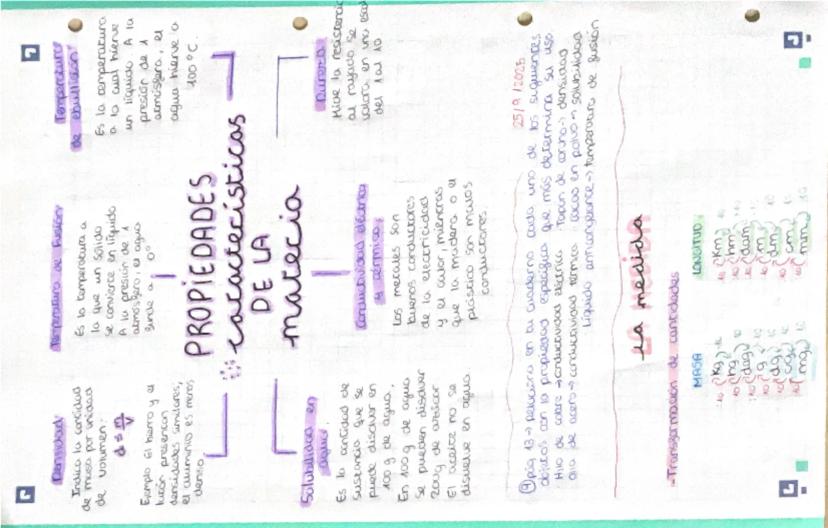 Densidad
Indica la cantidad
de masa por unidad
de volumen.
d = m/V
Ejemplo El hierro y el
latón presentan
densidades similares,
el aluminio es menos
denso.
Temperatura de Fusión
Es la temperatura a
la que un sólido
se convierte en líquido
A la presión de 1
atmósfera, el agua
funde a 0º
Temperatura
de ebullición
Es la temperatura
a la cual hierve
un líquido. A la
presión de 1
atmósfera, el
agua hierve a
100 ºC.
PROPIEDADES
características
DE LA
materia
Solubilidad en
agua
Es la cantidad de
sustancia que se
puede disolver en
100 g de agua.
En 100 g de agua
se pueden disolver
200g de azúcar
El aceite no se
disuelve en agua.
Conductividad eléctrica
y térmica
Los metales son
buenos conductores
de la electricidad
y el calor, mientras
que la madera o el
plástico son malos
conductores.
Dureza
Mide la resistencia
al rayado. Se
valora en una escal
del 1 al 10
25/9/2025
⑨ pág 13 → relaciona en tu cuaderno cada uno de los siguientes
objetos con la propiedad específica que más determina su uso
Hilo de cobre → conductividad eléctrica Tapón de corcho → densidad
olla de acero → conductividad térmica cacao en polvo → solubilidad
Líquido anticongelante → temperatura de fusión
LA MEDIDA
la medida
- Transformación de cantidades
MASA LONGITUD
kg km
hg hm
dag dam
g m
dg dm
cg cm
mg mm